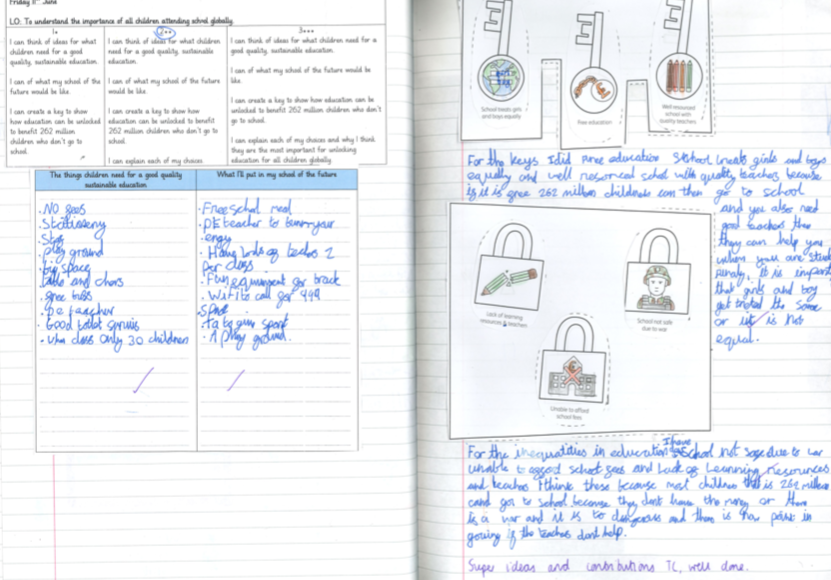 Friday 11th June
LO. To understand the importance of all children attending school globally.
1*
I can think of ideas for what
children need for a good
quality, sustainable
education.
I can of what my school of the
future would be like.
I can create a key to show
how education can be unlocked
to benefit 262 million
children who don't go to
school.
2**
I can think of ideas for what children
need for a good quality, sustainable
education.
I can of what my school of the future
would be like.
I can create a key to show how
education can be unlocked to benefit
262 million children who don't go to
school.
I can explain each of my choices
3***
I can think of ideas for what children need for a
good quality, sustainable education.
I can of what my school of the future would be
like.
I can create a key to show how education can be
unlocked to benefit 262 million children who don't
go to school.
I can explain each of my choices and why I think
they are the most important for unlocking
education for all children globally.
The things children need for a good quality
sustainable education
. No fees
. Stationery
. play ground
. big space
table and chars
. free buss
. pe teacher
. Good toilet
. class only 30 children
What I'll put in my school of the future
. Free school meal
. PE teacher to your
. of 2
Per class
. Fun equipment for
. to call for 999
. A play ground.
School treats girls
and boys equally
Free education
Well resourced
school with
quality teachers
For the keys I did free education School treats girls and boys
equally and well resorced school with quality teachers because
if it is free 262 million children can then go to school
and you also need
good teachers then
they can help you
when you are
it is
that girls and boy
get treted the same
or it is not
equal.
Lack of learning
resources & teachers
School not safe
due to war
Unable to afford
school fees
For the inequalities in education I have School not safe due to war
unable to afford school fees and Lack of Learning Resources
and teachers I think these because most children that is 262 million
cand go to school because they dont have the money or there
is a war and it is to dangerous and there is point in
going if the teachers dont help.
Super ideas and contributions TC, well done.